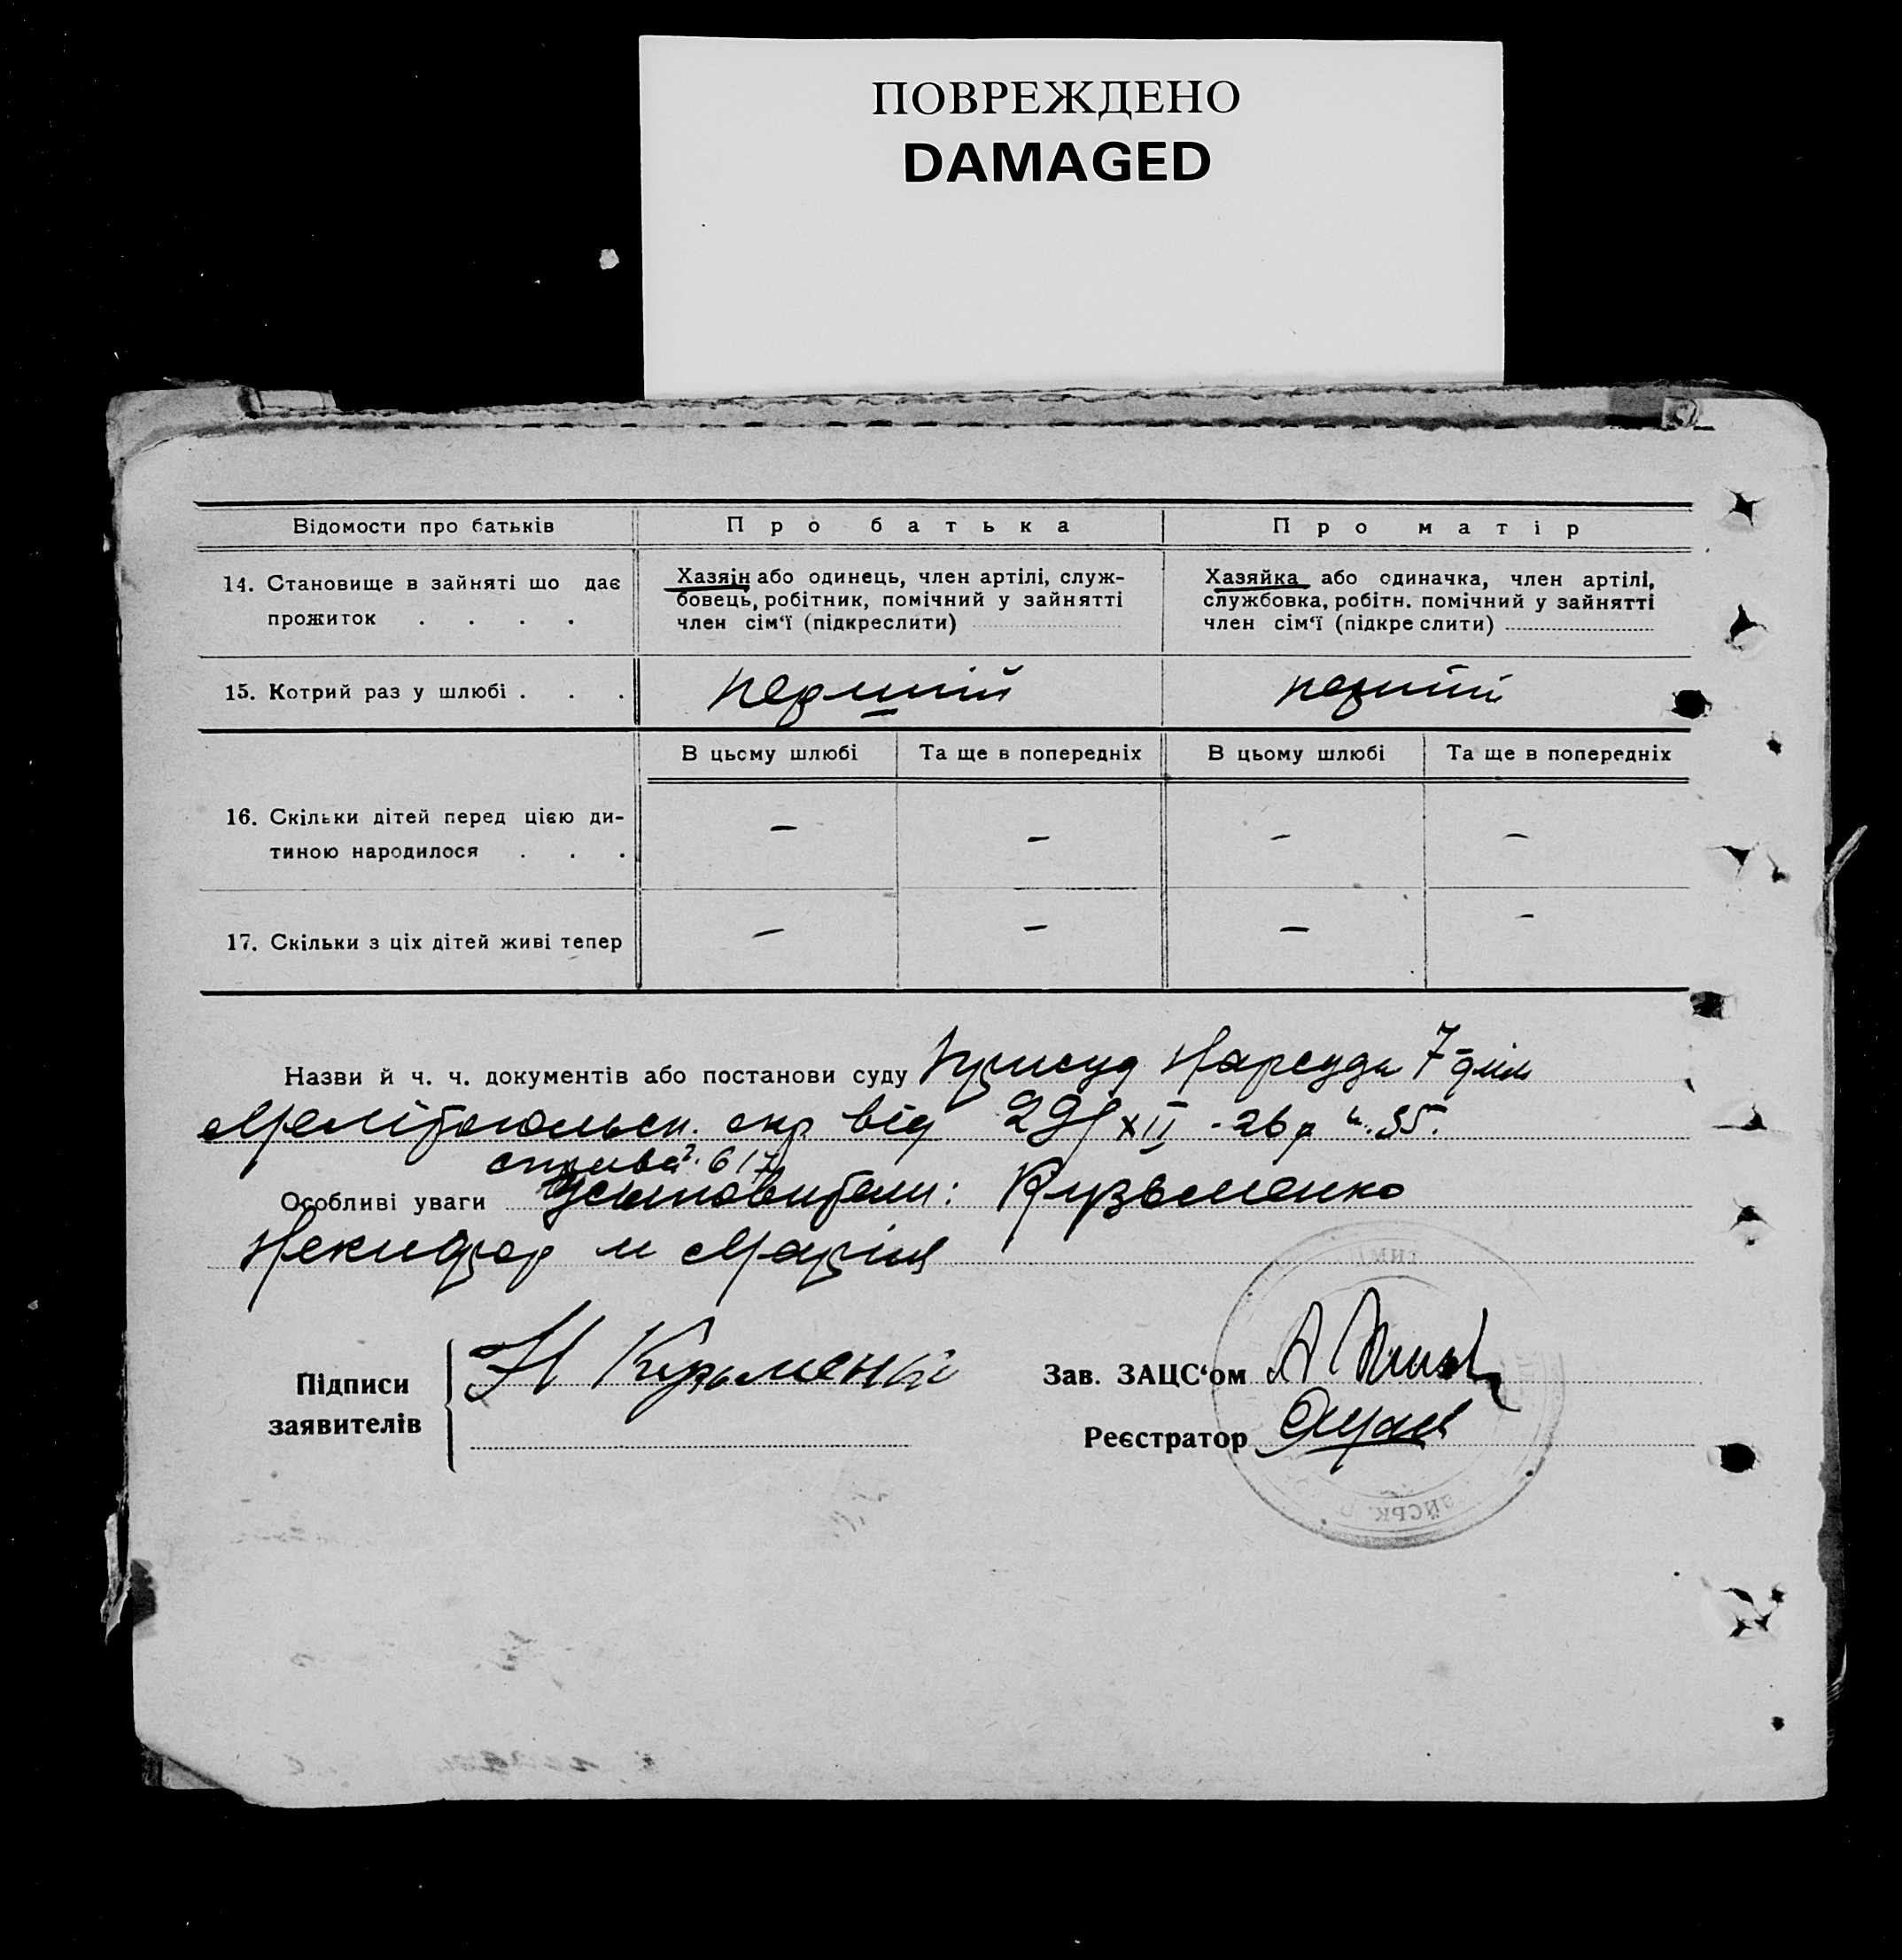 ПОВРЕЖДЕНО
DAMAGED
Відомости про батьків
Про батька
Про матір
14. Становище в зайняті що дає
прожиток . . . .
Хазяїн або одинець, член артілі, служ-
бовець, робітник, помічний у зайнятті
член сім‘ї (підкреслити)
Хазяйка або одиначка, член артілі,
службовка, робітн. помічний у зайнятті
член сім‘ї (підкреслити)
15. Котрий раз у шлюбі . . .
перший
перший
В цьому шлюбі
Та ще в попередніх
В цьому шлюбі
Та ще в попередніх
16. Скільки дітей перед цією ди-
тиною народилося . . .
— — — —
17. Скільки з ціх дітей живі тепер
— — — —
Назви й ч. ч. документів або постанови суду Присуд Нарсуда 7 діл
Мелітопольск. окр від 29/XII -26 р ч. 35.
справа 617
Особливі уваги Усыновители: Кузьменко
Некифор и Марія
Підписи
заявителів
Н Кузьменко
Зав. ЗАЦС‘ом
Реєстратор